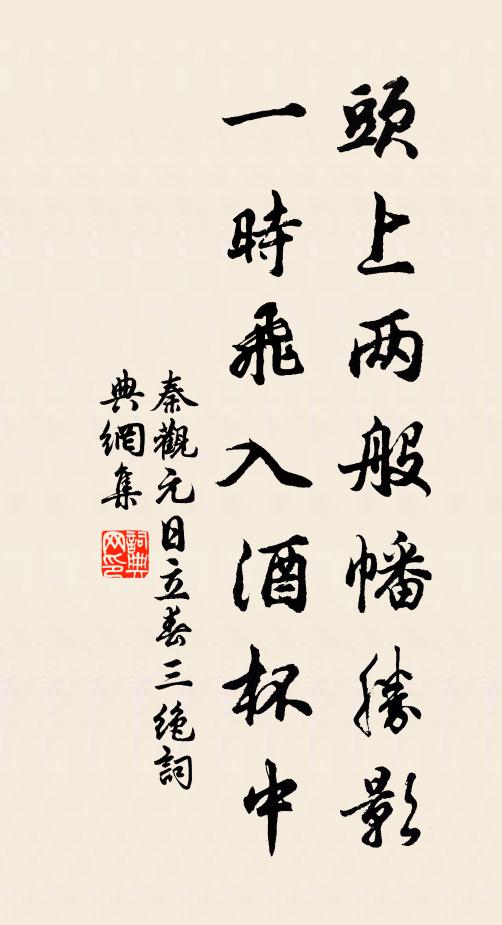 頭上两般幡勝影
一時飛入酒杯中
秦觀元日立春三絶詞
典網集
詞典
网印